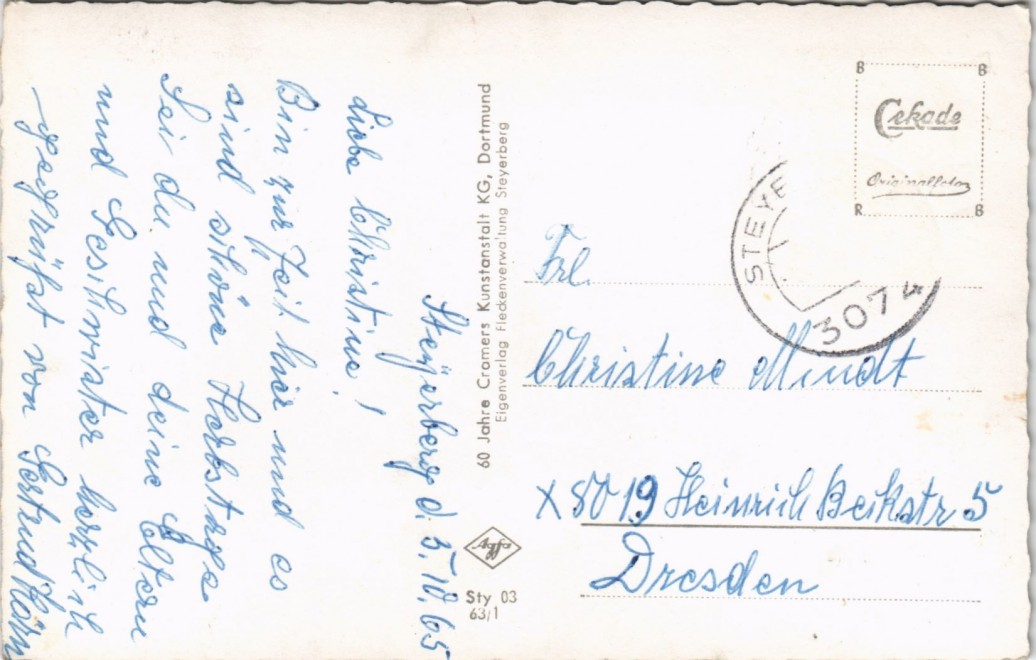 Steyerberg d. 5.10.65
Liebe Christine!
Bin zur Zeit hier und es
sind schöne Herbsttage
Sei du und deine Eltern
und Geschwister herzlich
gegrüßt von
60 Jahre Cramers Kunstanstalt KG, Dortmund
Eigenverlag Fleckenverwaltung Steyerberg
Agfa
Sty 03
63/1
B B
Cekade
Originalfoto
R B
STEYE
3074
Frl.
Christine Mundt
X 8019 Heinrich Beckstr 5
Dresden